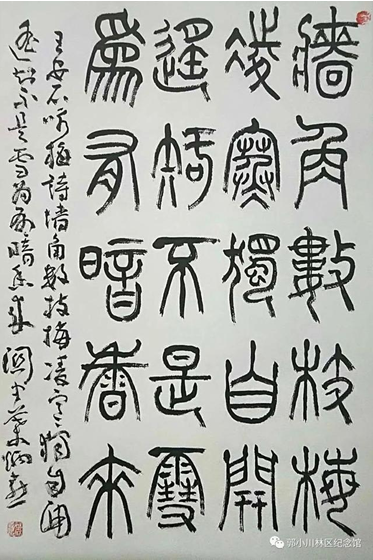 牆角數枝梅
凌寒獨自開
遙知不是雪
爲有暗香來
王安石咏梅詩墙角数枝梅凌寒獨自開
遥知不是雪为有暗香来
郭小川林区纪念馆